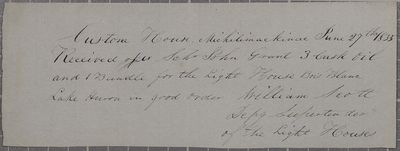 Custom House, Michilimackinac June 27th 1835
Received of Schr John Grant 3 Cask Oil
and 1 Bundle for the Light House Bois Blanc
Lake Huron in good order William Scott
Depy Superintender
of the Light Houses